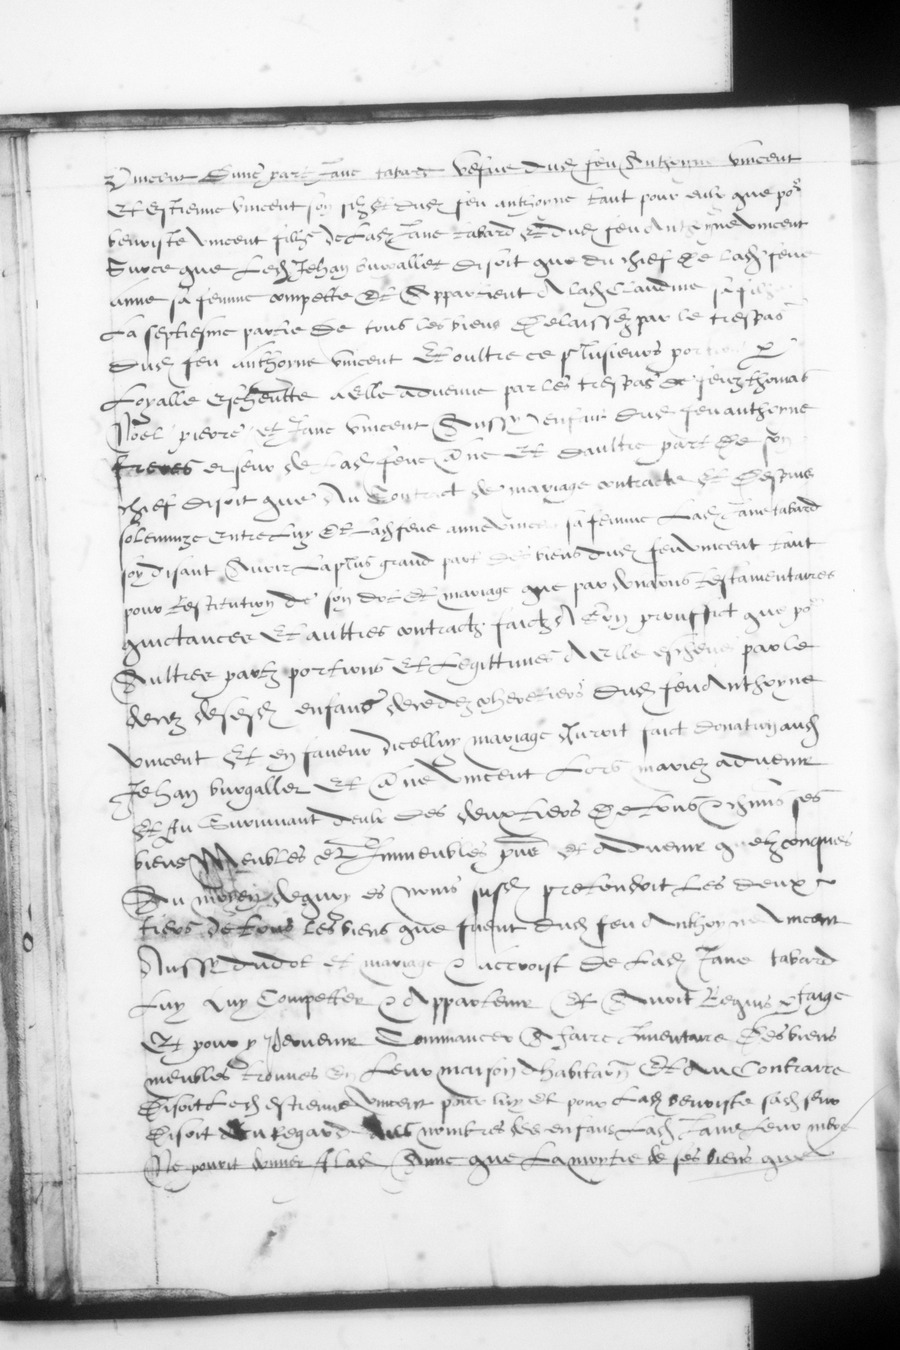 Vincent d'une part Jane tabard vefve dud feu Anthoyne vincent
Et Estienne vincent son filz Et dud feu anthoyne tant pour eulx que por
benoiste vincent fille de lad Jane tabard Et dud feu Anthoyne vincent
Surce que Led Jehan burgallet disoit que du chief de lad feue
anne sa femme compette Et Appartient A lad Claudine sa fille
La septiesme partie de tous les biens delaissez par le trespas
dud feu anthoine vincent Et oultre ce plusieurs
Loyalle Escheutte a elle advenue par les trespas de feuz thomas
Noel pierre et Jane vincent Aussy enfans dud feu anthoyne
freres et seur de lad feue Anne Et daultre part de son
chief disoit que Au Contract de mariage contracte Et despuis
solempnize Entre luy Et lad feue anne vincent sa femme Lad Jane tabard
soy disant Avoir La plus grand part des biens dud feu vincent tant
pour Restitution de son dot Et mariage que par donations testamentaires
quictances Et aultres contractz faictz A son prouffict que por
Aultres partz portions Et Legittimes A Elle escheues par le
deces desesd enfans heritiers dud feu Anthoyne
vincent Et en faveur dicelluy mariage Auroit faict donation aud
Jehan burgallet Et Anne vincent Lors mariez advenir
Et Au Survivant deulx des deux tiers de tous ses
biens Meubles Et Immeubles pns Et Advenir quelzconques
Au moyen dequoy es noms susd pretendoit Les deux
tiers de tous les biens que furent dud feu Anthoyne vincent
Aussy dudot et mariage accroist de lad Jane tabard
Luy Competter Appartenir Et Avoit Requis
Et pour y parvenir Commancer A faire Inventaire des biens
meubles trouves En leur maison dhabitation Et Au Contraire
disoit led estienne vincent pour luy Et pour lad benoiste sad seur
disoit Au Regard nombres des enfans lad Jane leur mere
Ne pouvoit donner A lad Anne que La moytie de ses biens que